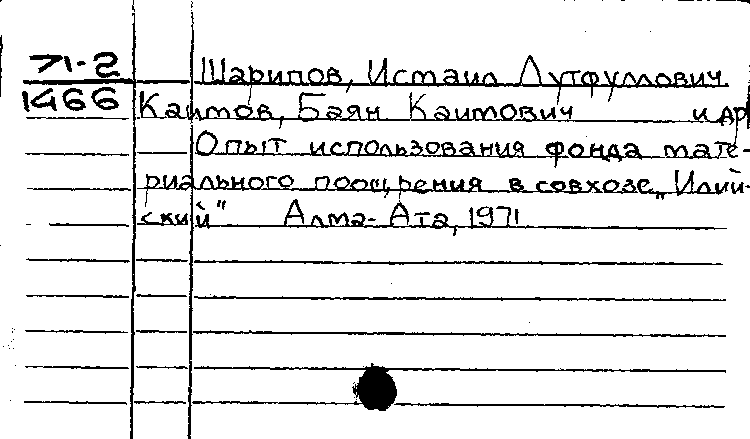 71-2
1466
Шарипов, Исмаил Лутфуллович
Каимов, Баян Каимович и др
Опыт использования фонда мате-
риального поощрения в совхозе „Илий-
ский" Алма-Ата, 1971